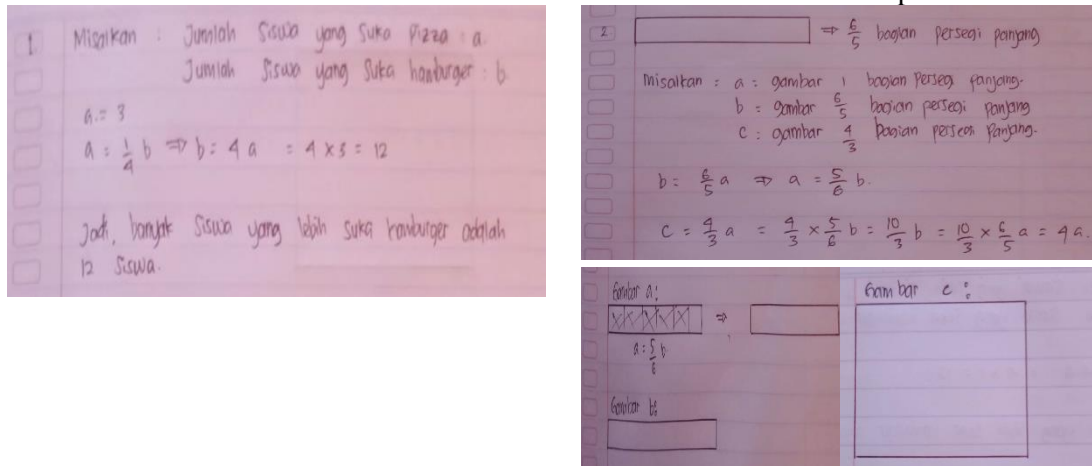 1 Misalkan : Jumlah Siswa yang Suka Pizza : a.
Jumlah Siswa yang Suka hamburger : b
a = 3
a = 1/4 b ⇒ b = 4 a = 4 x 3 = 12
Jadi, banyak Siswa yang lebih suka hamburger adalah
12 Siswa.
2 ⇒ 6/5 bagian persegi panjang
Misalkan : a = gambar 1 bagian persegi panjang.
b = gambar 6/5 bagian persegi panjang
c = gambar 4/3 bagian persegi panjang.
b = 6/5 a ⇒ a = 5/6 b.
c = 4/3 a = 4/3 x 5/6 b = 10/3 b = 10/3 x 6/5 a = 4 a.
Gambar a:
⇒
a = 5/6 b
Gambar b:
Gambar c :